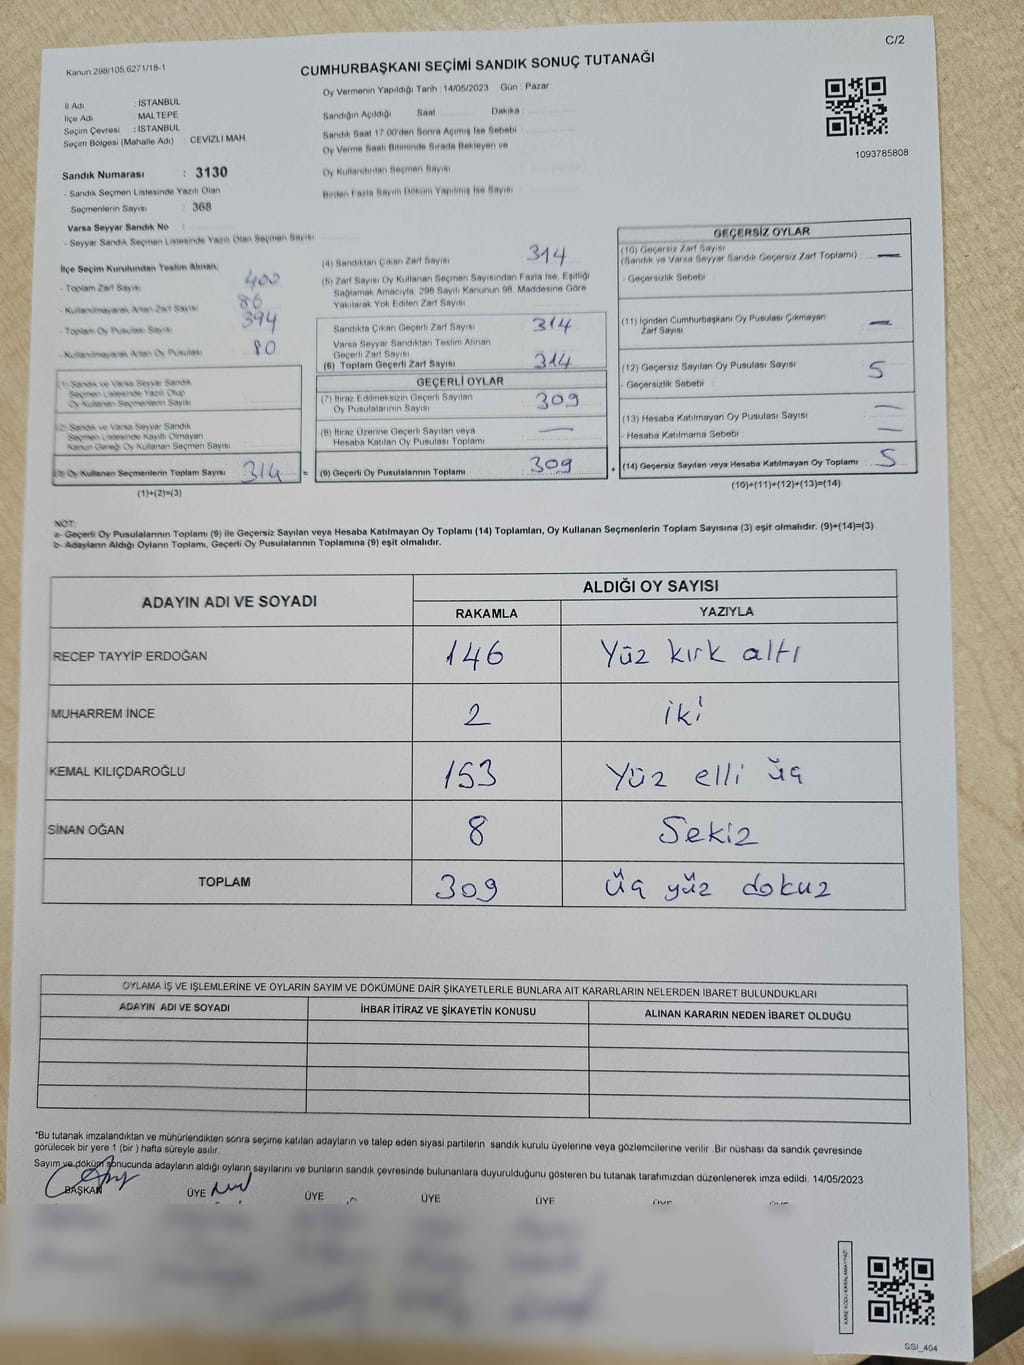 C/2
Kanun.298/105,6271/18-1
CUMHURBAŞKANI SEÇİMİ SANDIK SONUÇ TUTANAĞI
Oy Vermenin Yapıldığı Tarih : 14/05/2023 Gün : Pazar
İl Adı : İSTANBUL
İlçe Adı : MALTEPE
Seçim Çevresi : İSTANBUL
Seçim Bölgesi (Mahalle Adı) : CEVİZLİ MAH.
Sandığın Açıldığı Saat Dakika :
Sandık Saat 17:00'den Sonra Açılmış İse Sebebi :
Oy Verme Saati Bitiminde Sırada Bekleyen ve
Oy Kullandırılan Seçmen Sayısı
Birden Fazla Sayım Döküm Yapılmış İse Sayısı :
1093785808
Sandık Numarası : 3130
- Sandık Seçmen Listesinde Yazılı Olan
Seçmenlerin Sayısı : 368
Varsa Seyyar Sandık No :
- Seyyar Sandık Seçmen Listesinde Yazılı Olan Seçmen Sayısı :
İlçe Seçim Kurulundan Teslim Alınan;
- Toplam Zarf Sayısı 400
- Kullanılmayarak Artan Zarf Sayısı 86
- Toplam Oy Pusulası Sayısı 394
- Kullanılmayarak Artan Oy Pusulası 80
(1) Sandık ve Varsa Seyyar Sandık
Seçmen Listesinde Yazılı Olup
Oy Kullanan Seçmenlerin Sayısı
(2) Sandık ve Varsa Seyyar Sandık
Seçmen Listesinde Kayıtlı Olmayan
Kanun Gereği Oy Kullanan Seçmen Sayısı
(3) Oy Kullanan Seçmenlerin Toplam Sayısı 314 =
(1)+(2)=(3)
(4) Sandıktan Çıkan Zarf Sayısı 314
(5) Zarf Sayısı Oy Kullanan Seçmen Sayısından Fazla İse, Eşitliği
Sağlamak Amacıyla, 298 Sayılı Kanunun 98. Maddesine Göre
Yakılarak Yok Edilen Zarf Sayısı
Sandıkta Çıkan Geçerli Zarf Sayısı 314
Varsa Seyyar Sandıktan Teslim Alınan
Geçerli Zarf Sayısı
(6) Toplam Geçerli Zarf Sayısı 314
GEÇERLİ OYLAR
(7) İtiraz Edilmeksizin Geçerli Sayılan
Oy Pusulalarının Sayısı 309
(8) İtiraz Üzerine Geçerli Sayılan veya
Hesaba Katılan Oy Pusulası Toplamı —
(9) Geçerli Oy Pusulalarının Toplamı 309 +
GEÇERSİZ OYLAR
(10) Geçersiz Zarf Sayısı
(Sandık ve Varsa Seyyar Sandık Geçersiz Zarf Toplamı) —
- Geçersizlik Sebebi :
(11) İçinden Cumhurbaşkanı Oy Pusulası Çıkmayan
Zarf Sayısı —
(12) Geçersiz Sayılan Oy Pusulası Sayısı 5
- Geçersizlik Sebebi :
(13) Hesaba Katılmayan Oy Pusulası Sayısı —
- Hesaba Katılmama Sebebi : —
(14) Geçersiz Sayılan veya Hesaba Katılmayan Oy Toplamı 5
(10)+(11)+(12)+(13)=(14)
NOT:
a- Geçerli Oy Pusulalarının Toplamı (9) ile Geçersiz Sayılan veya Hesaba Katılmayan Oy Toplamı (14) Toplamları, Oy Kullanan Seçmenlerin Toplam Sayısına (3) eşit olmalıdır. (9)+(14)=(3)
b- Adayların Aldığı Oyların Toplamı, Geçerli Oy Pusulalarının Toplamına (9) eşit olmalıdır.
ADAYIN ADI VE SOYADI ALDIĞI OY SAYISI
RAKAMLA YAZIYLA
RECEP TAYYİP ERDOĞAN 146 Yüz kırk altı
MUHARREM İNCE 2 iki
KEMAL KILIÇDAROĞLU 153 Yüz elli üç
SİNAN OĞAN 8 Sekiz
TOPLAM 309 üç yüz dokuz
OYLAMA İŞ VE İŞLEMLERİNE VE OYLARIN SAYIM VE DÖKÜMÜNE DAİR ŞİKAYETLERLE BUNLARA AİT KARARLARIN NELERDEN İBARET BULUNDUKLARI
ADAYIN ADI VE SOYADI İHBAR İTİRAZ VE ŞİKAYETİN KONUSU ALINAN KARARIN NEDEN İBARET OLDUĞU
*Bu tutanak imzalandıktan ve mühürlendikten sonra seçime katılan adayların ve talep eden siyasi partilerin sandık kurulu üyelerine veya gözlemcilerine verilir .Bir nüshası da sandık çevresinde
görülecek bir yere 1 (bir ) hafta süreyle asılır.
Sayım ve döküm sonucunda adayların aldığı oyların sayılarını ve bunların sandık çevresinde bulunanlara duyurulduğunu gösteren bu tutanak tarafımızdan düzenlenerek imza edildi. 14/05/2023
BAŞKAN ÜYE ÜYE ÜYE ÜYE ÜYE ÜYE
KARE KODU KARALAMAYINIZ!
SSİ_404